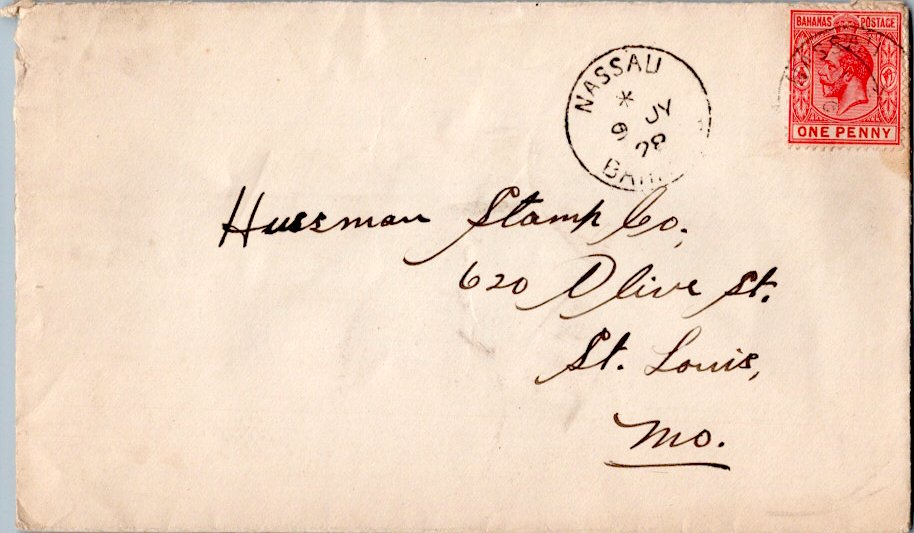 BAHAMAS POSTAGE
ONE PENNY
NASSAU
* JY
28
BAHA
Hussman Stamp Co.,
620 Olive St.
St. Louis,
Mo.